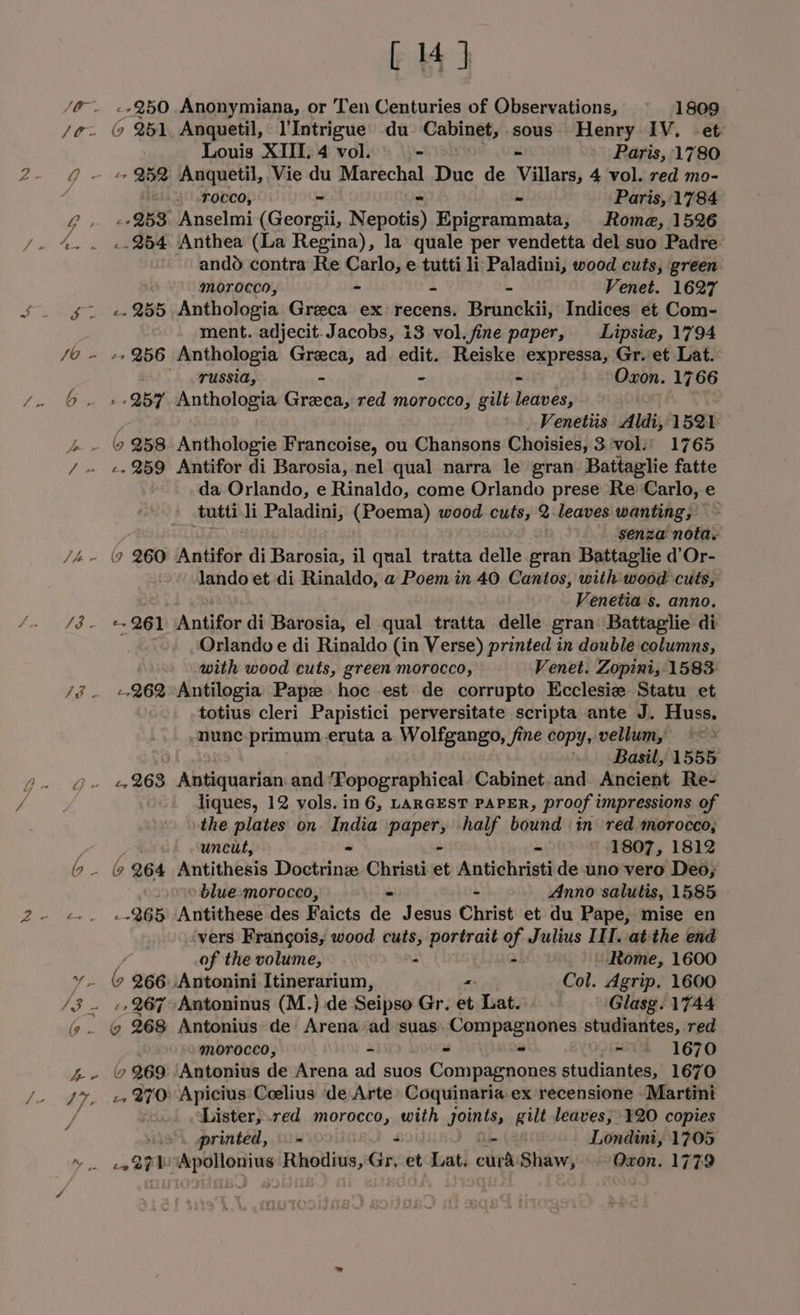 [ 14 ]
250 Anonymiana, or Ten Centuries of Observations, 1809
251 Anquetil, l'Intrigue du Cabinet, sous Henry IV. et
Louis XIII. 4 vol. - - Paris, 1780
252 Anquetil, Vie du Marechal Duc de Villars, 4 vol. red mo-
rocco, - - - Paris, 1784
253 Anselmi (Georgii, Nepotis) Epigrammata, Romæ, 1526
254 Anthea (La Regina), la quale per vendetta del suo Padre
andò contra Re Carlo, e tutti li Paladini, wood cuts, green
morocco, - - - Venet. 1627
255 Anthologia Græca ex recens. Brunckii, Indices et Com-
ment. adjecit Jacobs, 13 vol. fine paper, Lipsiæ, 1794
256 Anthologia Græca, ad edit. Reiske expressa, Gr. et Lat.
russia, - - - Oxon. 1766
257 Anthologia Græca, red morocco, gilt leaves,
Venetiis Aldi, 1521
258 Anthologie Francoise, ou Chansons Choisies, 3 vol. 1765
259 Antifor di Barosia, nel qual narra le gran Battaglie fatte
da Orlando, e Rinaldo, come Orlando prese Re Carlo, e
tutti li Paladini, (Poema) wood cuts, 2 leaves wanting,
senza nota.
260 Antifor di Barosia, il qual tratta delle gran Battaglie d'Or-
lando et di Rinaldo, a Poem in 40 Cantos, with wood cuts,
Venetia s. anno.
261 Antifor di Barosia, el qual tratta delle gran Battaglie di
Orlando e di Rinaldo (in Verse) printed in double columns,
with wood cuts, green morocco, Venet. Zopini, 1583
262 Antilogia Papæ hoc est de corrupto Ecclesiæ Statu et
totius cleri Papistici perversitate scripta ante J. Huss.
nunc primum eruta a Wolfgango, fine copy, vellum,
Basil, 1555
263 Antiquarian and Topographical Cabinet and Ancient Re-
liques, 12 vols. in 6, LARGEST PAPER, proof impressions of
the plates on India paper, half bound in red morocco,
uncut, - - - 1807, 1812
264 Antithesis Doctrinæ Christi et Antichristi de uno vero Deo,
blue morocco, - - Anno salutis, 1585
265 Antithese des Faicts de Jesus Christ et du Pape, mise en
vers François, wood cuts, portrait of Julius III. at the end
of the volume, - - Rome, 1600
266 Antonini Itinerarium, - Col. Agrip. 1600
267 Antoninus (M.) de Seipso Gr. et Lat. Glasg. 1744
268 Antonius de Arena ad suas Compagnones studiantes, red
morocco, - - - - 1670
269 Antonius de Arena ad suos Compagnones studiantes, 1670
270 Apicius Cœlius de Arte Coquinaria ex recensione Martini
Lister, red morocco, with joints, gilt leaves, 120 copies
printed, - - - Londini, 1705
271 Apollonius Rhodius, Gr. et Lat. curâ Shaw, Oxon. 1779